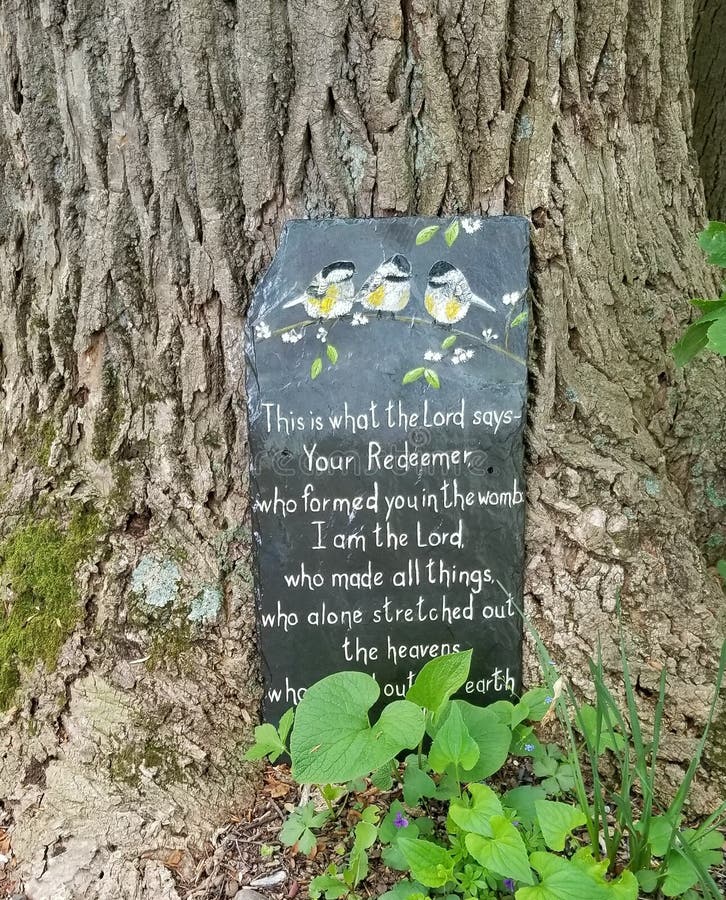 This is what the Lord says-
Your Redeemer
who formed you in the womb
I am the Lord,
who made all things,
who alone stretched out
the heavens
who out earth